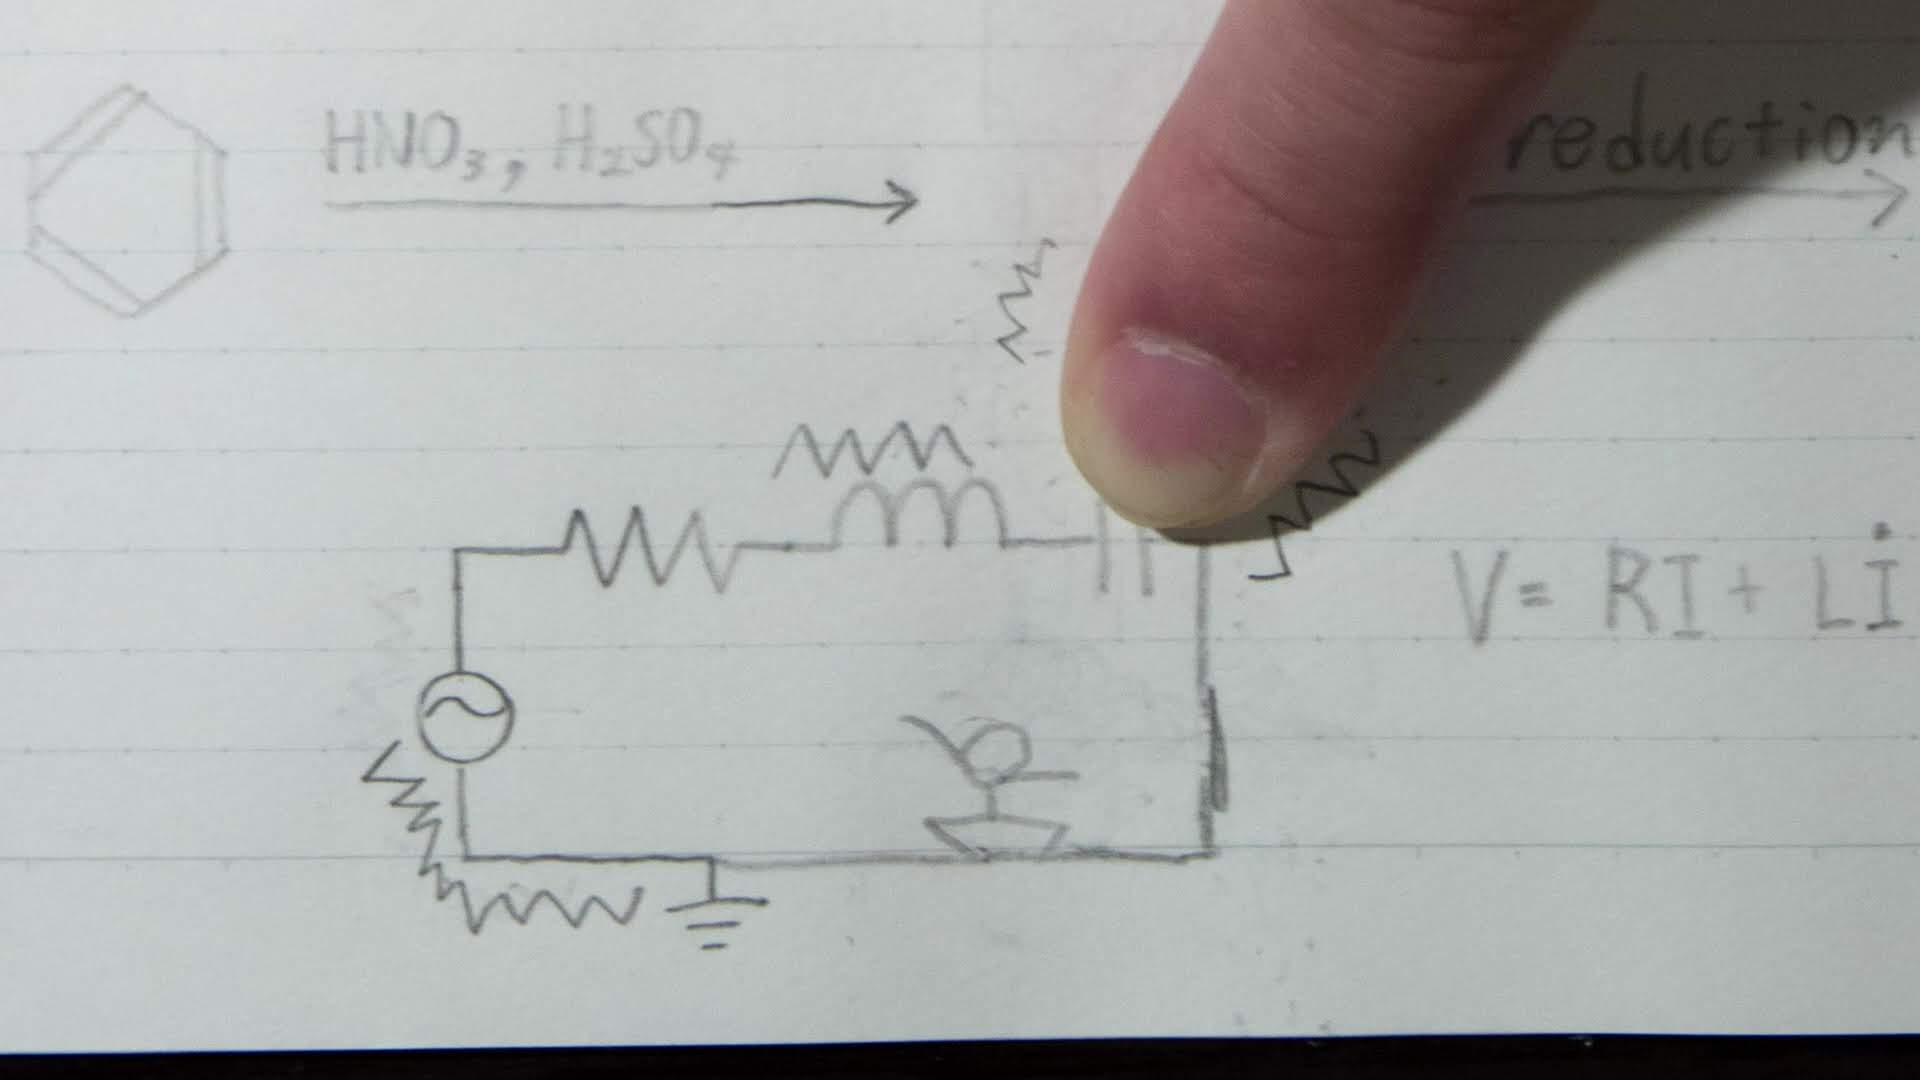 HNO₃, H₂SO₄ reduction
V = RI + Lİ